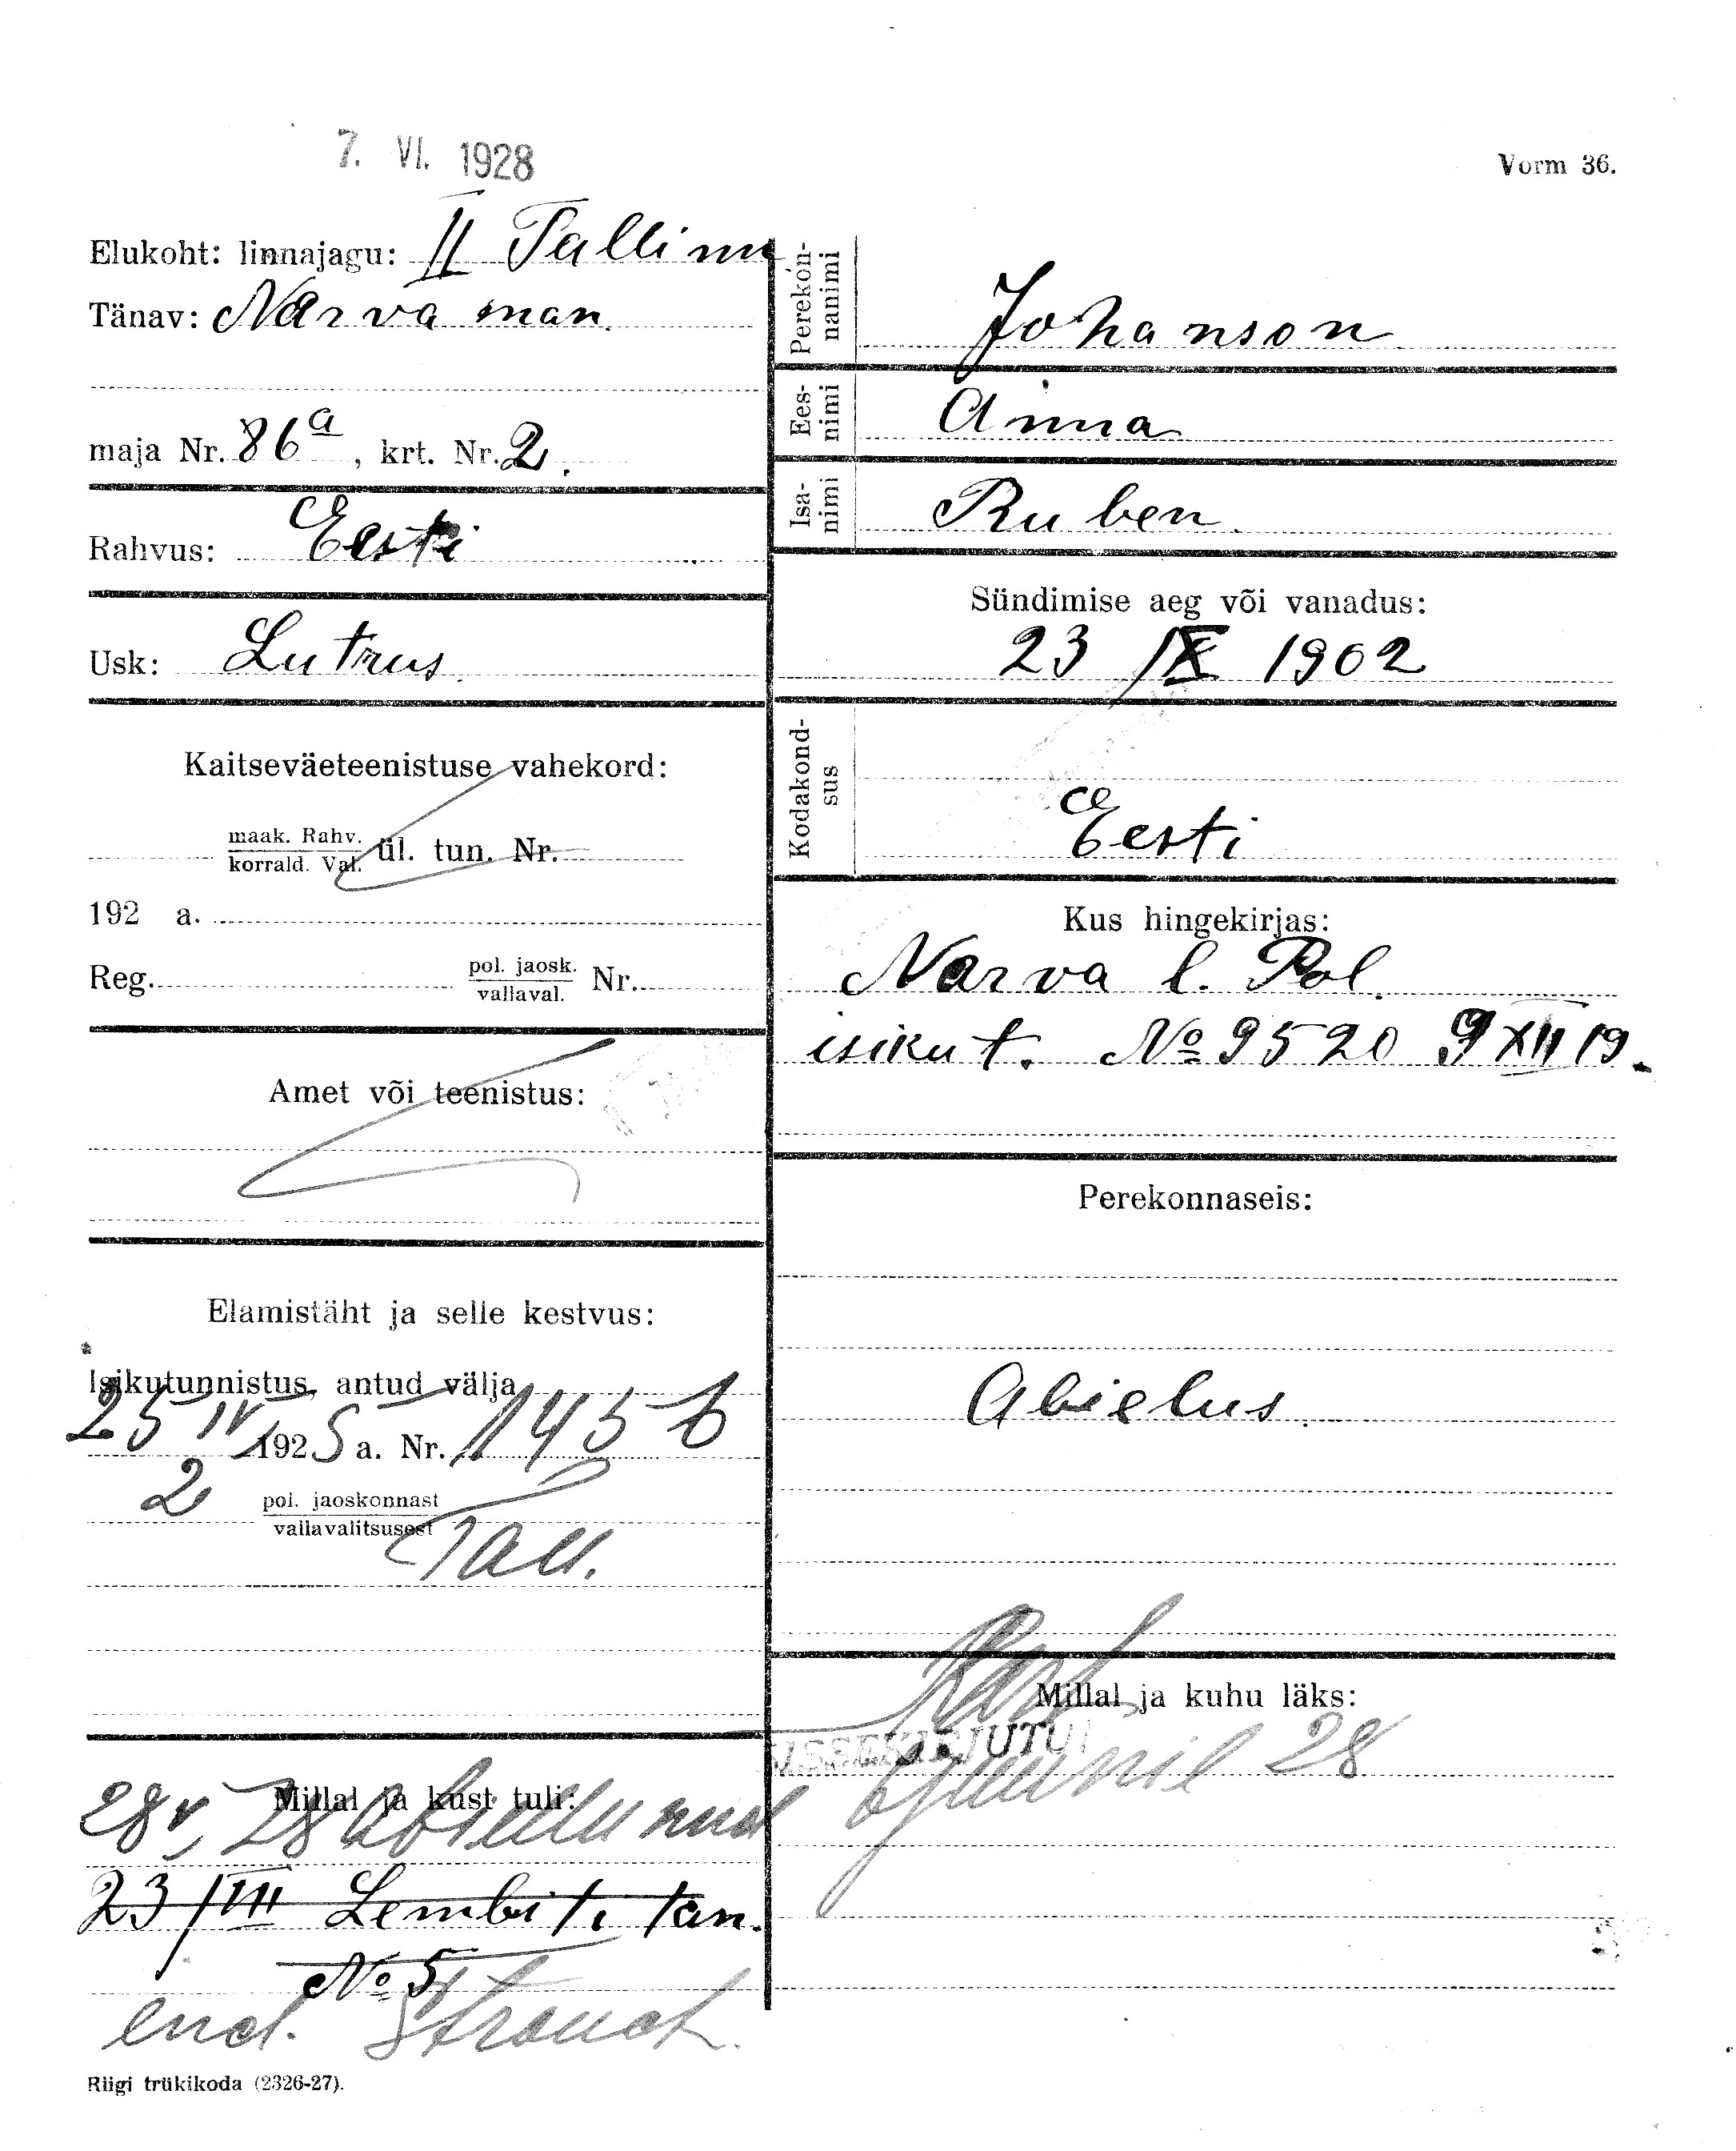 7. VI. 1928
Vorm 36.
Elukoht: linnajagu: II Tallinn
Tänav: Narva man.
maja Nr. 86a, krt. Nr. 2.
Rahvus: Eesti
Usk: Lutrus.
Kaitseväeteenistuse vahekord:
maak. Rahv.
korrald. Val. ül. tun. Nr.
192 a.
Reg. pol. jaosk. Nr.
vallaval.
Amet või teenistus:
Elamistäht ja selle kestvus:
Isikutunnistus, antud välja
25 IV 1925 a. Nr. 1456
2 pol. jaoskonnast
vallavalitsusest Tall.
Millal ja kust tuli:
28 V, 28 abiellunud
23/VIII Lembitu tän.
No 5
end. Strauch.
Riigi trükikoda (2326-27).
Perekon-
nanimi
Johanson
Ees-
nimi
Anna
Isa-
nimi
Ruben.
Sündimise aeg või vanadus:
23 IX 1902
Kodakond-
sus
Eesti
Kus hingekirjas:
Narva l. Pol.
isikut. No 9520 9 XII 19.
Perekonnaseis:
Abielus.
Millal ja kuhu läks:
SISSEKIRJUTUD
6 juunil 28